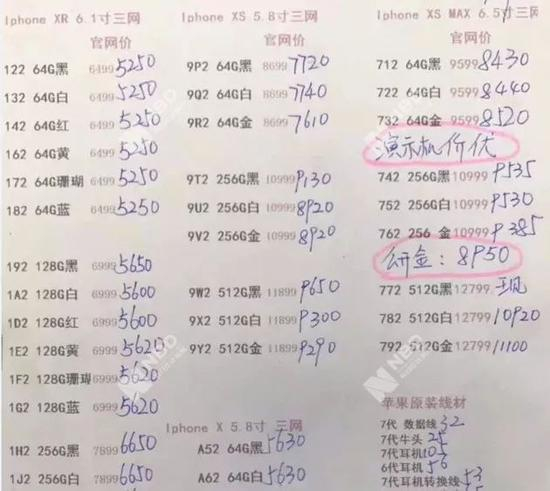 Iphone XR 6.1寸三网
官网价
122 64G黑 6499 5250
132 64G白 6499 5250
142 64G红 6499 5250
162 64G黄 6499 5250
172 64G珊瑚 6499 5250
182 64G蓝 6499 5250
192 128G黑 6999 5650
1A2 128G白 6999 5600
1D2 128G红 6999 5600
1E2 128G黄 6999 5620
1F2 128G珊瑚 6999 5620
1G2 128G蓝 6999 5620
1H2 256G黑 7899 6650
1J2 256G白 7899 6650
Iphone XS 5.8寸三网
官网价
9P2 64G黑 8699 7720
9Q2 64G白 8699 7740
9R2 64G金 8699 7610
9T2 256G黑 10999 9130
9U2 256G白 10999 8920
9V2 256G金 10999 8920
9W2 512G黑 11899 9650
9X2 512G白 11899 9300
9Y2 512G金 11899 9290
Iphone X 5.8寸 三网
A52 64G黑 5630
A62 64G白 5630
Iphone XS MAX 6.5寸三网
官网价
712 64G黑 9599 8430
722 64G白 9599 8440
732 64G金 9599 8520
演示机价优
742 256G黑 10999 9535
752 256G白 10999 9530
762 256 金 10999 9385
研金：8950
772 512G黑 12799
782 512G白 12799 10920
792 512G金 12799 11100
苹果原装线材
7代 数据线 32
7代牛头 25
7代耳机 105
6代耳机 56
7代耳机转换线
NBD